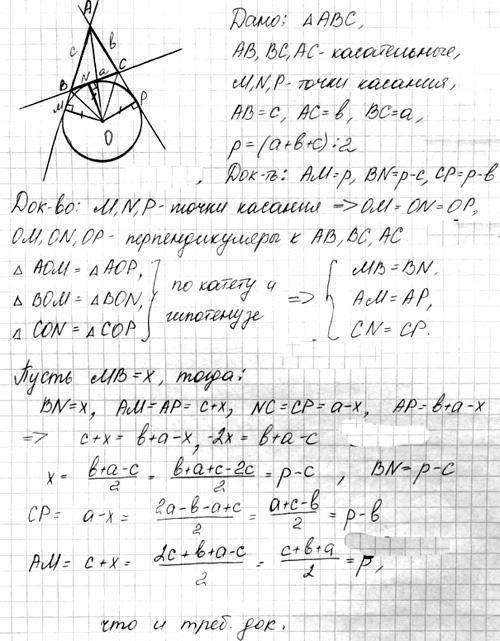 A
c
b
B
N
a
C
M
P
O
Дано: △ABC,
AB, BC, AC - касательные,
M, N, P - точки касания,
AB=c, AC=b, BC=a,
p=(a+b+c):2
Док-ть: AM=p, BN=p-c, CP=p-b
Док-во: M, N, P - точки касания => OM=ON=OP,
OM, ON, OP - перпендикуляры к AB, BC, AC
△ AOM = △AOP,
△ BOM = △BON,
△ CON = △COP
по катету и
гипотенузе
=>
MB=BN,
AM=AP,
CN=CP.
Пусть MB=x, тогда:
BN=x, AM=AP=c+x, NC=CP=a-x, AP=b+a-x
=> c+x = b+a-x, -2x = b+a-c
x = (b+a-c)/2 = (b+a+c-2c)/2 = p-c, BN=p-c
CP= a-x = (2a-b-a+c)/2 = (a+c-b)/2 = p-b
AM= c+x = (2c+b+a-c)/2 = (c+b+a)/2 = p,
что и треб. док.